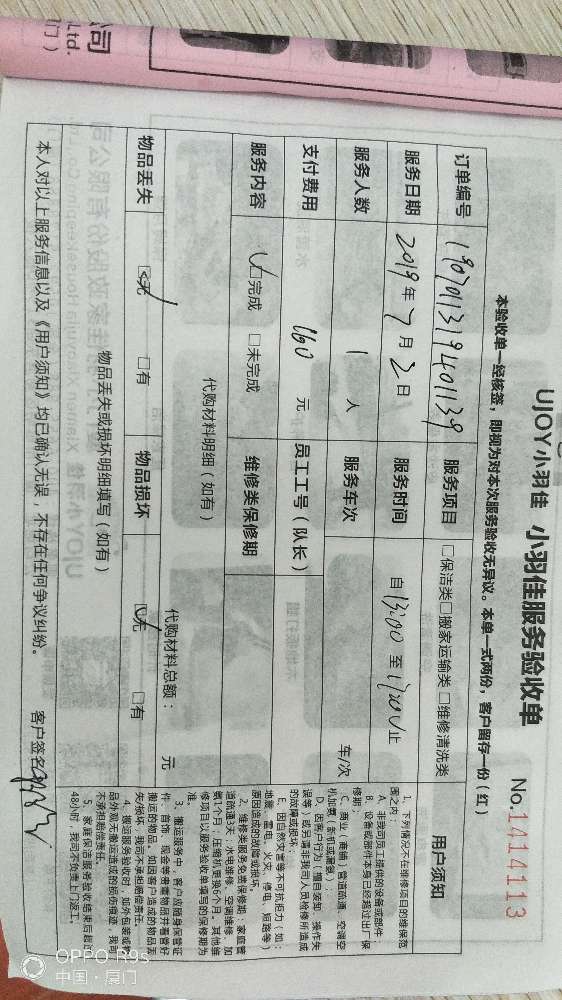 公司
Ltd.
门）
UJOY小羽佳 小羽佳服务验收单
No.1414113
本验收单一经核签，即视为对本次服务验收无异议。本单一式两份，客户留存一份（红）
订单编号 190701131940139 服务项目 □保洁类□搬家运输类□维修清洗类
服务日期 2019年7月2日 服务时间 自13:00至17:00止
服务人数 1人 服务车次 车/次
支付费用 160元 员工工号（队长）
服务内容 ☑完成 □未完成 维修类保修期
代购材料明细（如有） 代购材料总额： 元
物品丢失 ☑无 □有 物品损坏 ☑无 □有
物品丢失或损坏明细填写（如有）
本人对以上服务信息以及《用户须知》均已确认无误，不存在任何争议纠纷。 客户签名
用户须知
1、下列情况不在维修项目的维保范
围之内：
A、非我司员工提供的设备或部件；
B、设备或部件本身已经超过出厂保
修期；
C、商业（商铺）管道疏通、空调空
机加氨（新机或漏氨）；
D、因客户行为（擅自装卸、操作失
误等）或另请非我司人员检修所造成
的故障或损坏；
E、因自然灾害等不可抗拒力（如：
地震、雷电、火灾、停电、短路等）
原因造成的故障或损坏。
2、维修类服务免费保修期：家庭管
道疏通3天；水电维修、空调维修、加
氨1个月；压缩机更换6个月；其他维
修项目以服务验收单填写的保修期为
准。
3、搬运服务中，客户应随身保管证
件、首饰、现金等贵重物品并看管好
搬运的物品，如因客户造成的物品丢
失/损坏，我司不承担赔偿责任。
4、搬运服务验收时，如外包装或物
品外观无搬运造成的损伤痕迹，我司
不承担赔偿责任。
5、家庭保洁服务验收结束后超过
48小时，我司不负责上门返工。
OPPO R9s
中国·厦门